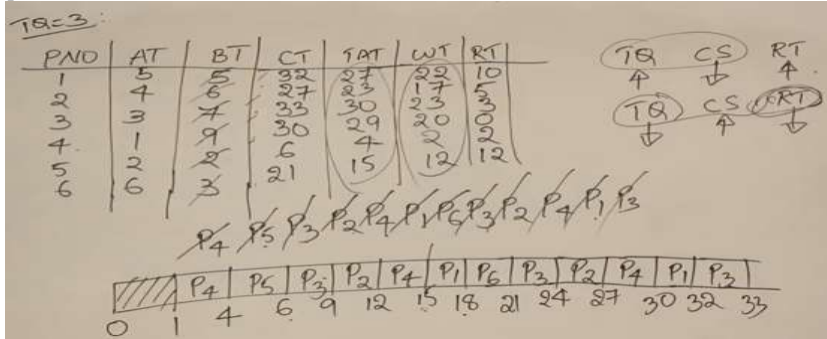 TQ=3:
PNO AT BT CT TAT WT RT
1 5 5 32 27 22 10
2 4 6 27 23 17 5
3 3 7 33 30 23 3
4 1 9 30 29 20 0
5 2 2 6 4 2 2
6 6 3 21 15 12 12
TQ CS RT
TQ CS RT
P4 P5 P3 P2 P4 P1 P6 P3 P2 P4 P1 P3
P4 P5 P3 P2 P4 P1 P6 P3 P2 P4 P1 P3
0 1 4 6 9 12 15 18 21 24 27 30 32 33